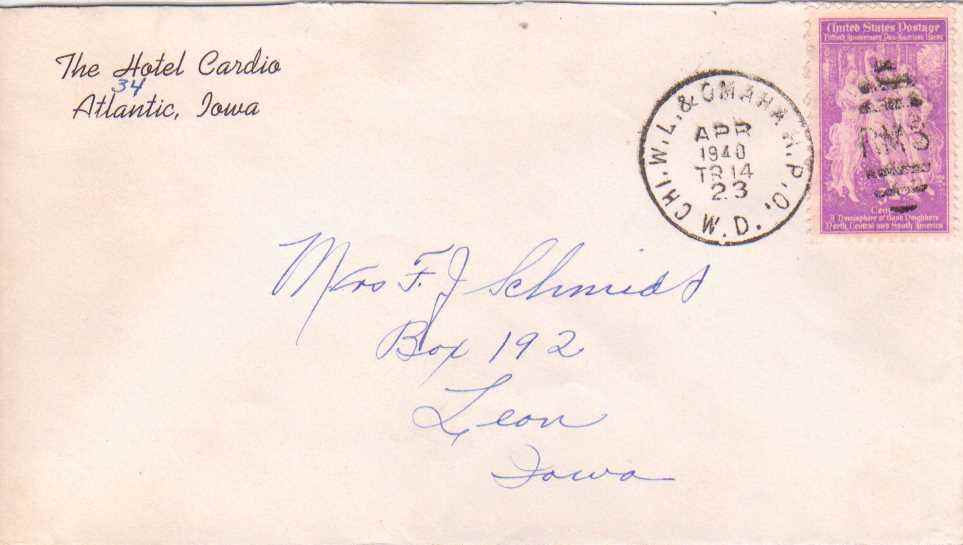 The Hotel Cardio
34
Atlantic, Iowa
CHI. W. L. & OMAHA R. P. O.
APR
1940
TR 14
23
W. D.
United States Postage
RMS
A Hemisphere of Good Neighbors
North, Central and South America
Mrs F. J Schmidt
Box 192
Leon
Iowa